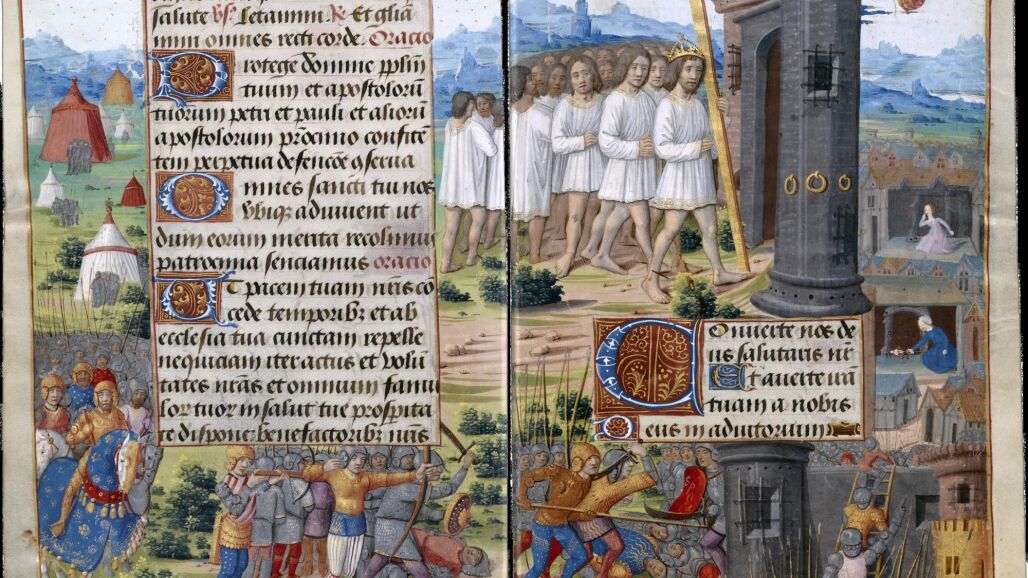 salute V͛. Letamini. R͛ Et glia
mini omnes recti corde. Oracio
Protege domine pplm
tuum et apostolorū
tuorum petri et pauli et aliorū
apostolorum pr̄cinio confidē
tem perpetua defensiōe ꝯserua
Omnes sancti tui nos
vbiqʒ adiuvent ut
dum eorum merita recolimus
patrocinia senciamus oracio
Et pacem tuam nr̄is cō
cede temporibʒ et ab
ecclesia tua cunctam repelle
nequiciam iter actus et volun
tates nr̄as et omnium famu
lor tuor in salut tue prospita
te dispone: benefactoribʒ nr̄is
Converte nos de
us salutaris nr̄
Et averte irā
tuam a nobis
Deus in adiutorium